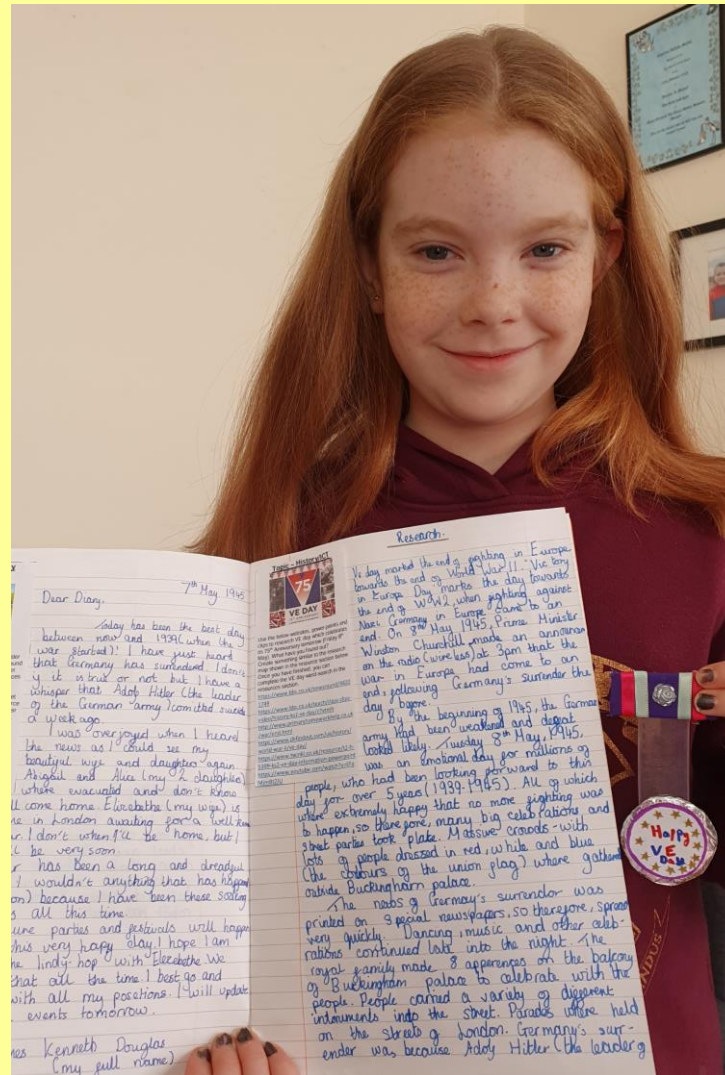 7th May, 1945
Dear Diary,
Today has been the best day
between now and 1939 (when the
war started)! I have just heard
that Germany has surrenderd. I don't
y it is true or not but I have a
whisper that Adolf Hitler (the leader
of the German army) comitted suicide
a week ago.
I was overjoyed when I heard
the news as I could see my
beautiful wife and daughters again.
Abigail and Alice (my 2 daughters)
where evacuated and don't know
ll come home. Elizebethe (my wife) is
in London awaiting for a well-know
r. I don't when I'll be home, but I
l be very soon.
r has been a long and dreadful
I wouldn't anything that has happen
on) because I have been these
s all this time.
une parties and festivals will happen
this very happy day. I hope I am
he lindy-hop with Elizebethe. We
that all the time. I best go and
with all my posetions. I will update
events tomorrow.
mes Kenneth Douglas
(my full name)
Topic - History/ICT
75
VE DAY
Use the below websites, power points and
clips to research VE day which celebrates
its 75th Anniversary tomorrow (Friday 8th
May). What have you found out?
Create something similar to the research
map shown in the resource section below.
Once you have finished, you can
complete the VE day word search in the
resources section.
Research.
Ve day marked the end of fighting in Europe
towards the end of World War II. Victory
in Europe Day marks the day towards
the end of WW2, when fighting against
Nazi Germany in Europe came to an
end. On 8th May, 1945, Prime Minister
Winston Churchill made an announcen
on the radio (wireless) at 3pm that the
war in Europe had come to an
end, following Germany's surrender the
day before.
By the beginning of 1945, the German
army had been weakened and defeat
looked likely. Tuesday 8th May, 1945,
was an emotional day for millions of
people, who had been looking forward to this
day for over 5 years (1939-1945). All of which
where extremely happy that no more fighting was
to happen, so therefore, many big celebrations and
street parties took plake. Massive crowds - with
lots of people dressed in red, white and blue
(the colours of the union flag) where gathered
outside Buckingham palace.
The news of Germay's surrendor was
printed on special newspapers, so therefore, spread
very quickly. Dancing, music and other celeb-
rations continued lats into the night. The
royal family made 8 apperences on the balcony
of Buckingham palace to celebrate with the
people. People carried a variety of different
instruments into the street. Parades where held
on the streets of London. Germany's surr-
ender was because Adolf Hitler (the leader of
Happy
VE
Day